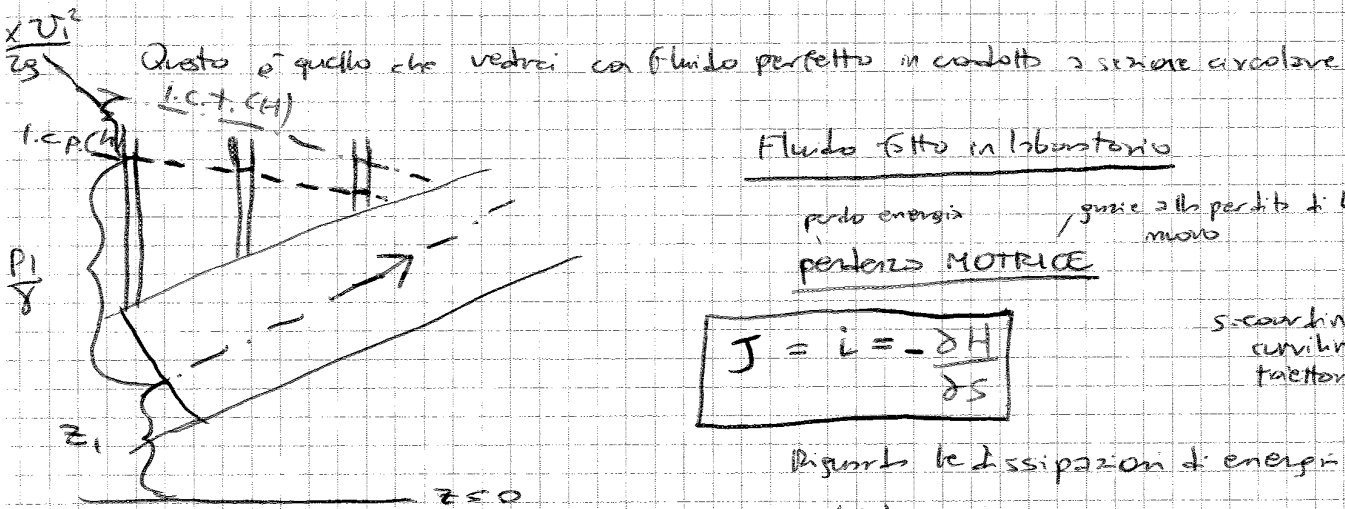 αU₁²
2g
Questo è quello che vedrei con fluido perfetto in condotto a sezione circolare
l.c.t. (H)
l.c.p.(h)
Fluido fatto in laboratorio
perdo energia
grazie alla perdita di
nuovo
pendenza MOTRICE
P1
γ
J = i = - ∂H
∂s
s=coordin
curvilin
traettor
Z₁
Riguardo le dissipazioni di energia
z=0